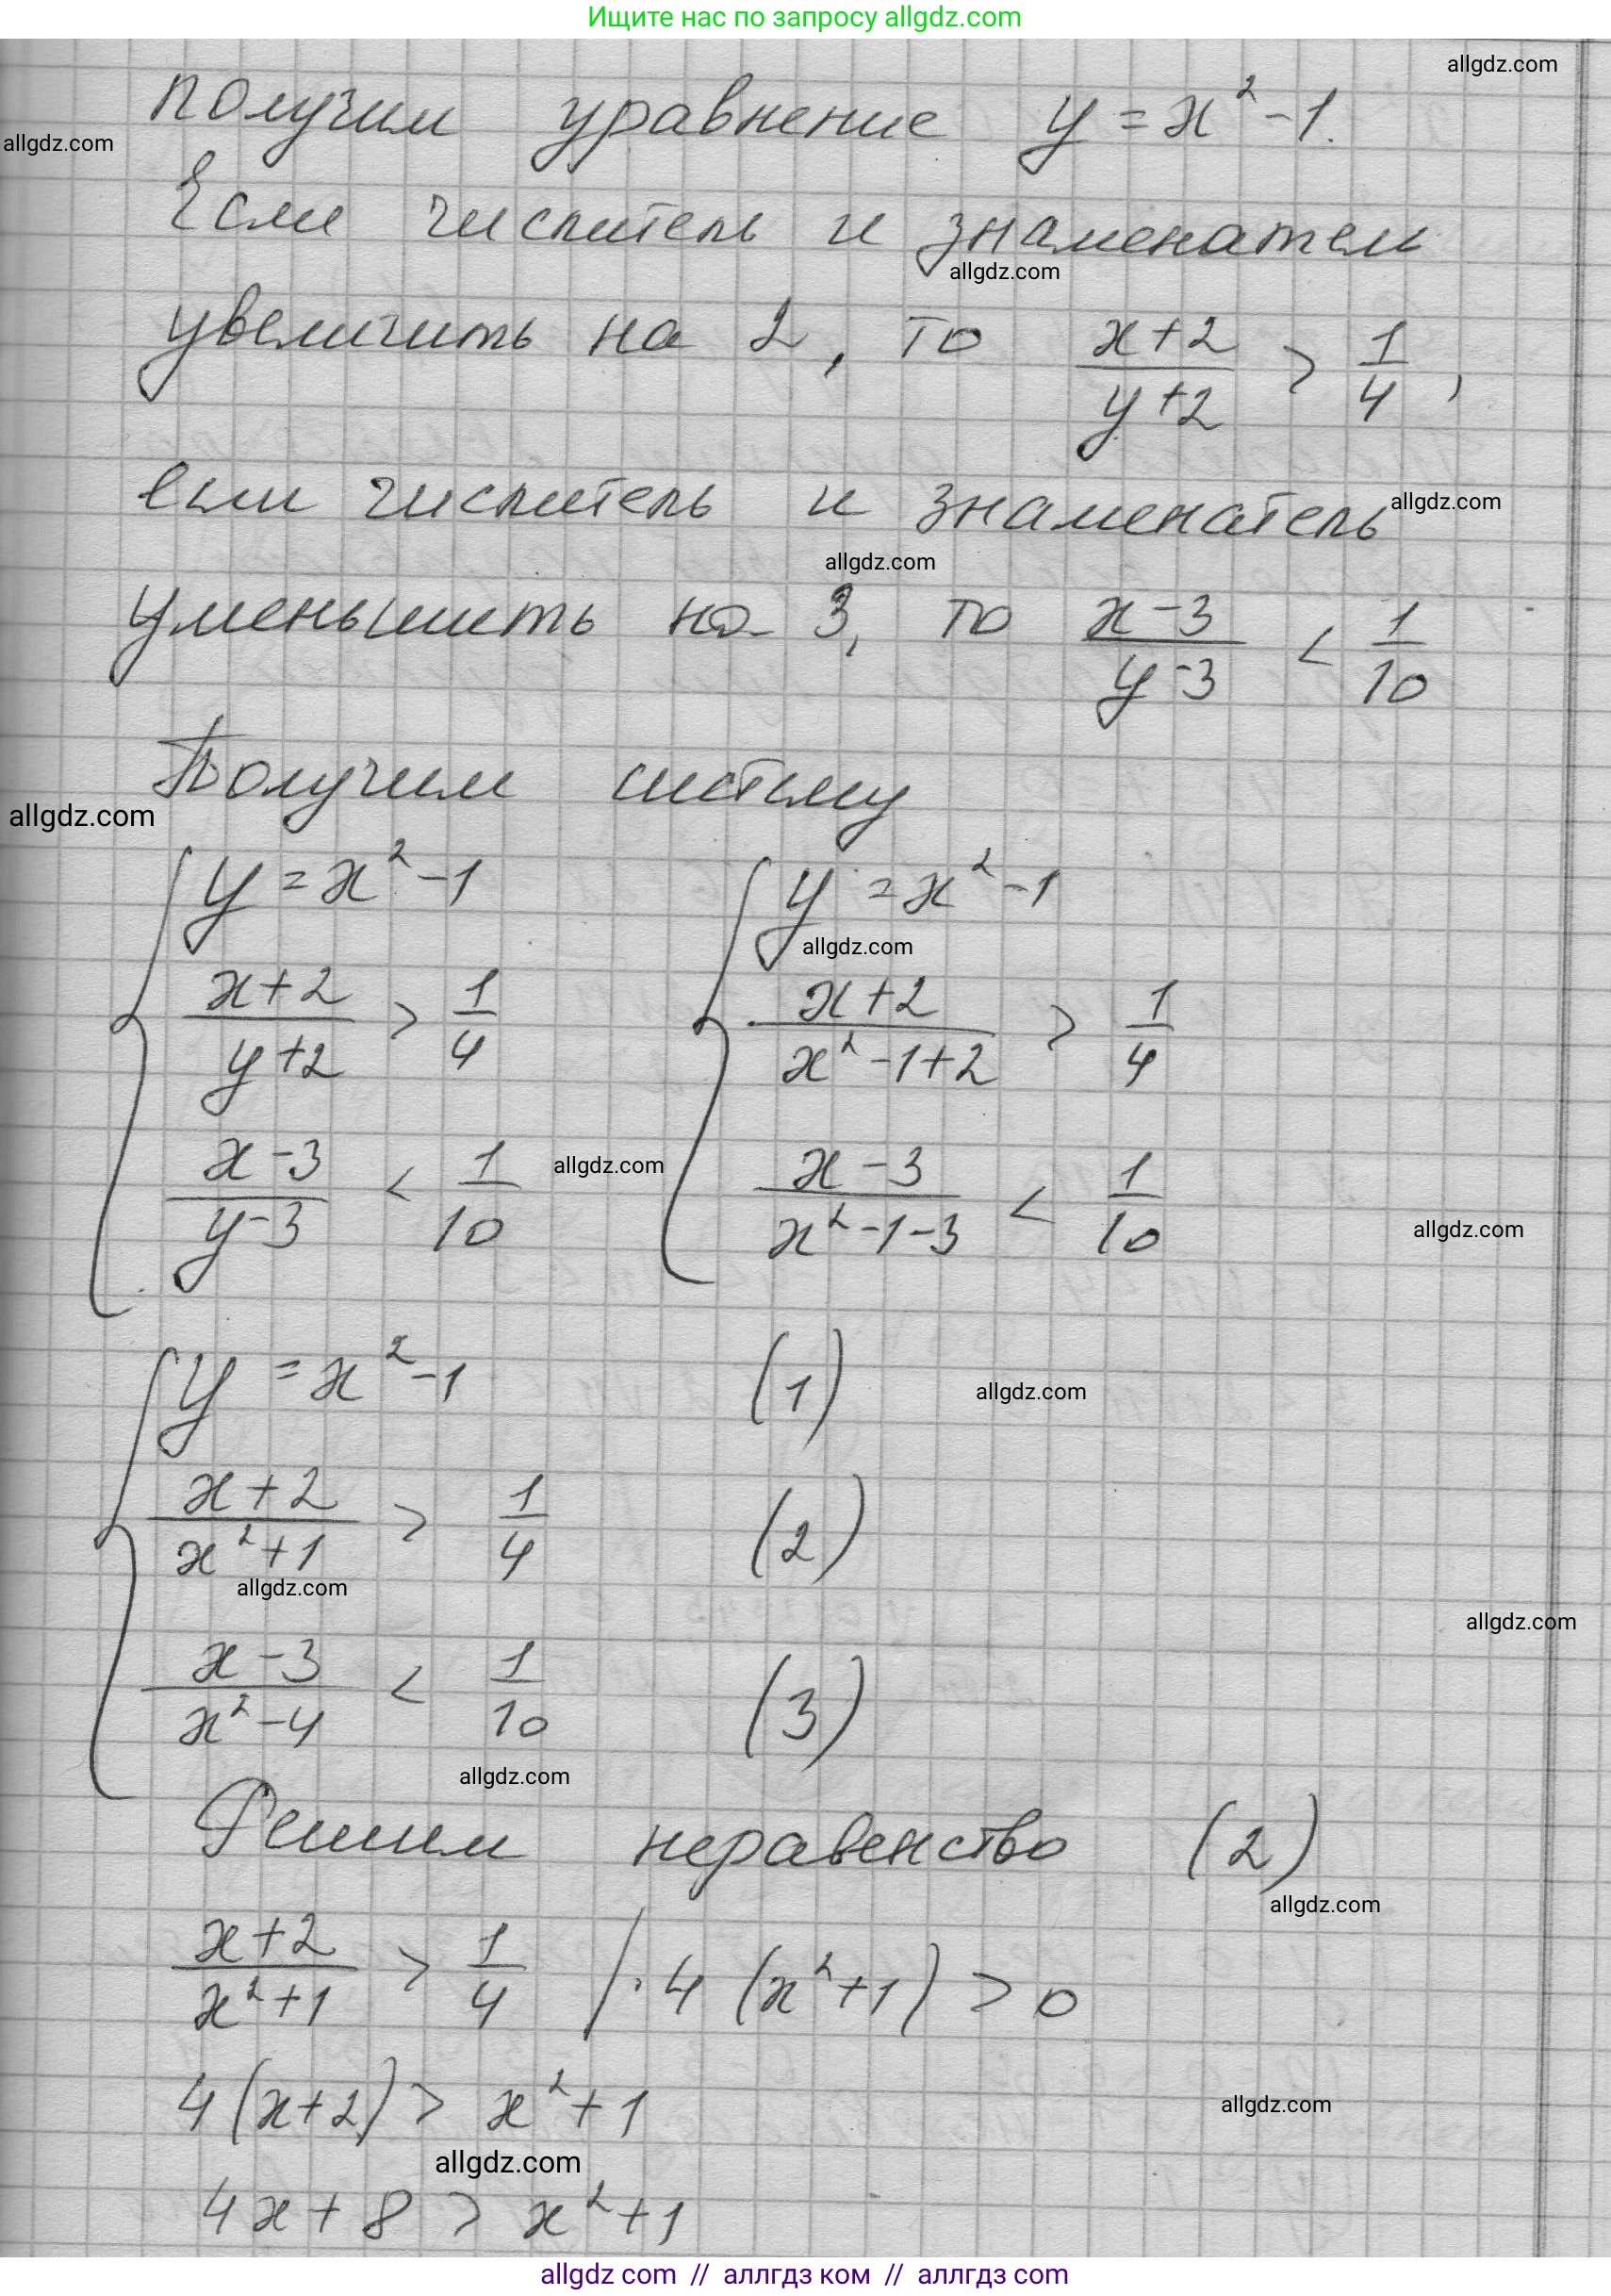 Ищите нас по запросу allgdz.com
allgdz.com
получим уравнение y = x² - 1.
allgdz.com
Если числитель и знаменатель
allgdz.com
увеличить на 2, то (x+2)/(y+2) > 1/4,
если числитель и знаменатель
allgdz.com
allgdz.com
уменьшить на 3, то (x-3)/(y-3) < 1/10
Получим систему
allgdz.com
{ y = x² - 1 { y = x² - 1
allgdz.com
(x+2)/(y+2) > 1/4 (x+2)/(x²-1+2) > 1/4
(x-3)/(y-3) < 1/10 (x-3)/(x²-1-3) < 1/10
allgdz.com
allgdz.com
{ y = x² - 1 (1)
allgdz.com
(x+2)/(x²+1) > 1/4 (2)
allgdz.com
allgdz.com
(x-3)/(x²-4) < 1/10 (3)
allgdz.com
Решим неравенство (2)
allgdz.com
(x+2)/(x²+1) > 1/4 /·4 (x²+1) > 0
4(x+2) > x²+1
allgdz.com
allgdz.com
4x + 8 > x²+1
allgdz com // аллгдз ком // аллгдз com